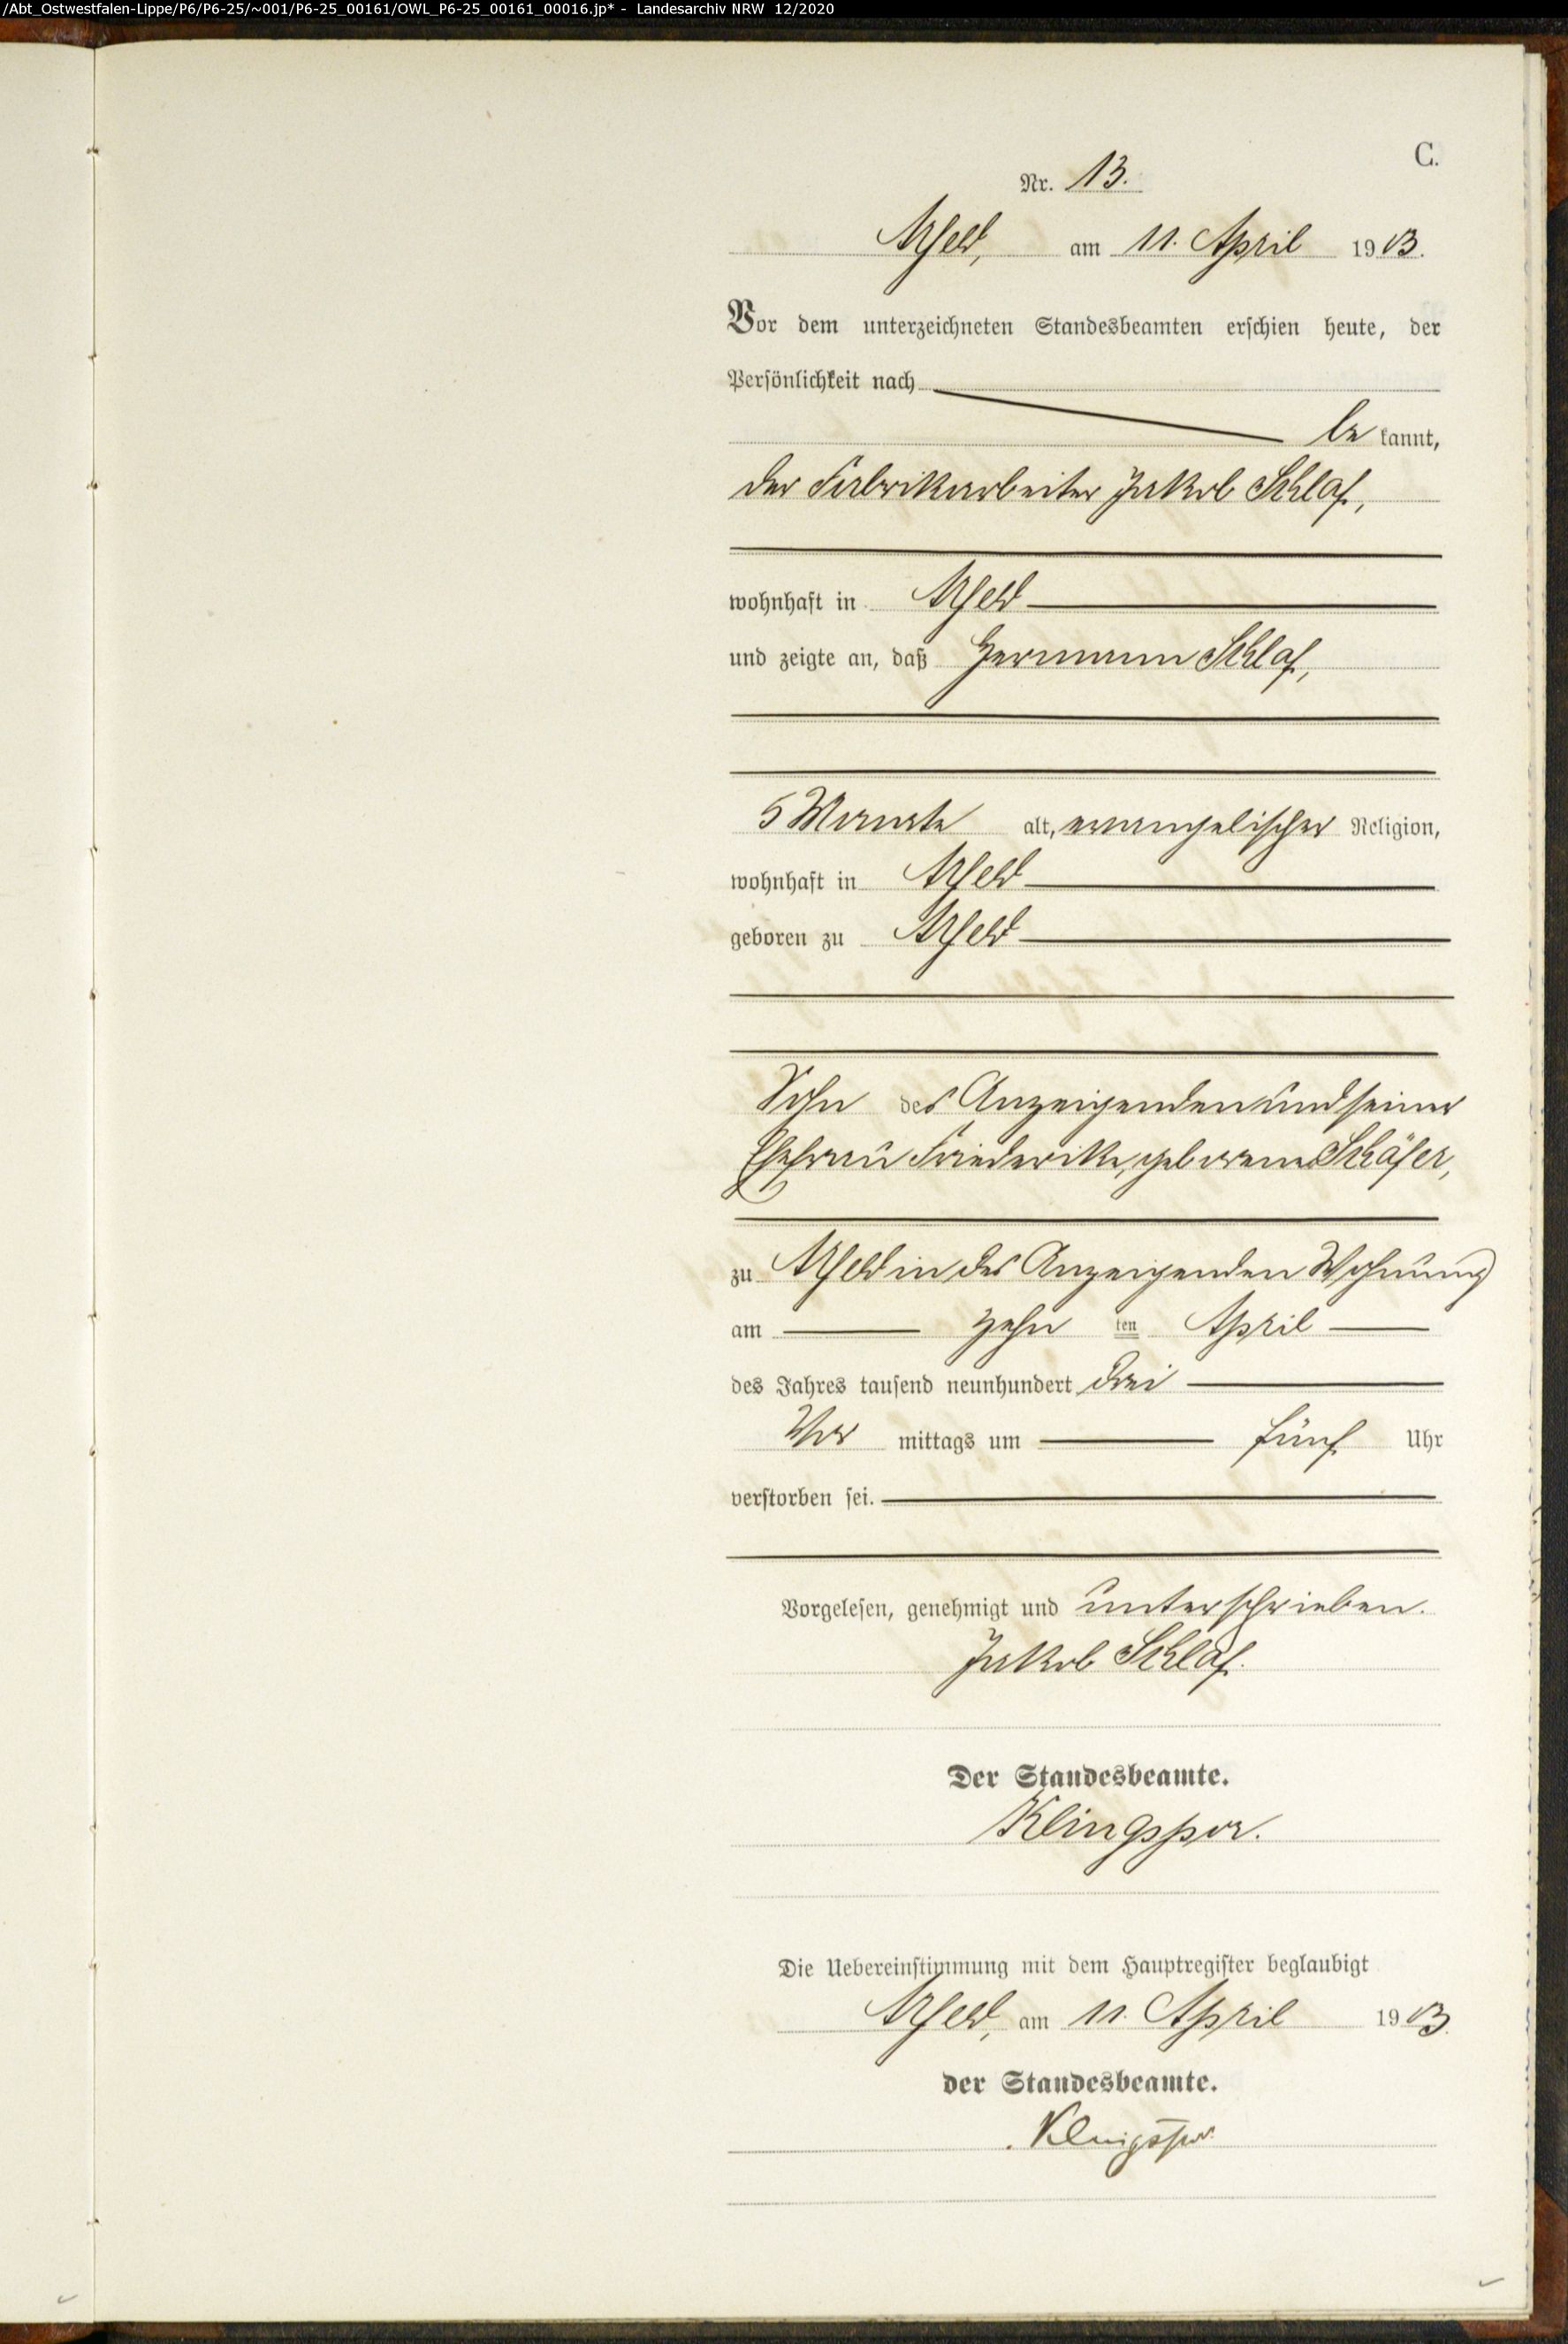 /Abt_Ostwestfalen-Lippe/P6/P6-25/~001/P6-25_00161/OWL_P6-25_00161_00016.jp* - Landesarchiv NRW 12/2020
C.
Nr. 13.
Arfeld, am 11. April 1903.
Vor dem unterzeichneten Standesbeamten erschien heute, der
Persönlichkeit nach
be kannt,
der Fabrikarbeiter Jakob Schlaf,
wohnhaft in Arfeld
und zeigte an, daß Hermann Schlaf,
5 Monate alt, evangelischer Religion,
wohnhaft in Arfeld
geboren zu Arfeld
Sohn des Anzeigenden und seiner
Ehefrau Friederike, geborene Schäfer,
zu Arfeld in des Anzeigenden Wohnung
am zehn ten April
des Jahres tausend neunhundert drei
Vor mittags um fünf Uhr
verstorben sei.
Vorgelesen, genehmigt und unterschrieben.
Jakob Schlaf.
Der Standesbeamte.
Klingspor.
Die Uebereinstimmung mit dem Hauptregister beglaubigt
Arfeld, am 11. April 1903.
der Standesbeamte.
Klingspor